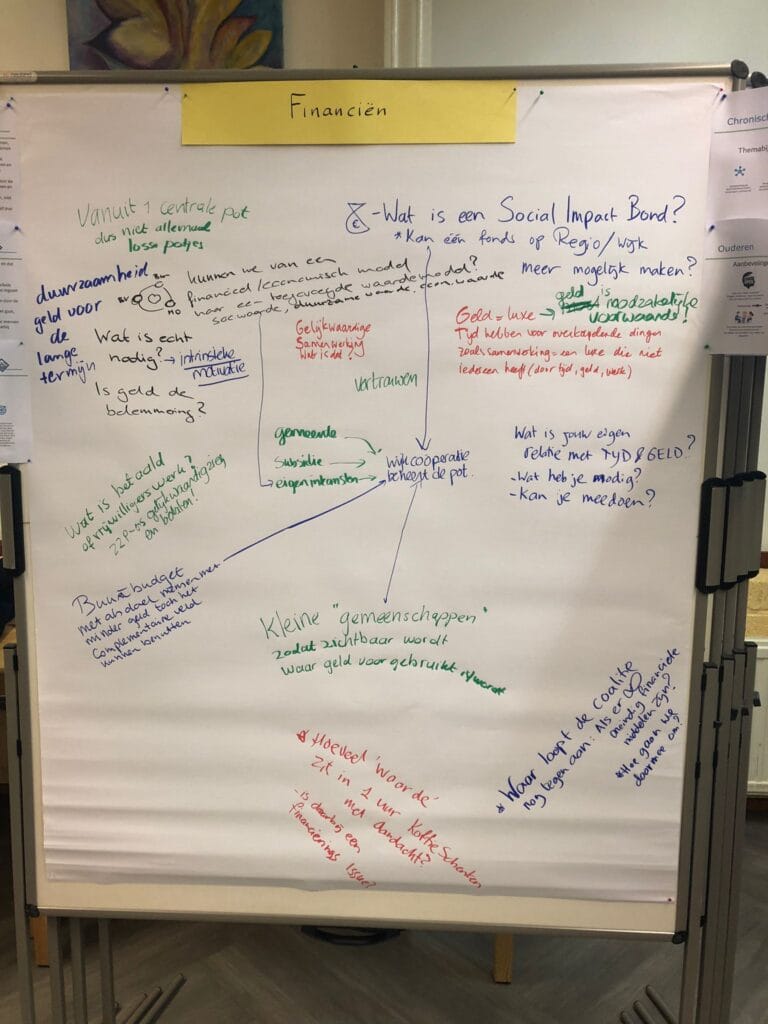 Financiën
Vanuit 1 centrale pot
dus niet allemaal
losse potjes
- Wat is een Social Impact Bond?
* Kan één fonds op Regio/wijk
meer mogelijk maken?
duurzaamheid
geld voor
de
lange
termijn
kunnen we van een
financieel/economisch model
naar een toegevoegde waardemodel?
soc waarde, duurzame waarde, econ. waarde
Wat is echt
nodig? → intrinsieke
motivatie
Is geld de
belemmering?
Gelijkwaardige
Samenwerking
Wat is dat?
Geld = luxe → geld is
noodzakelijke
voorwaarde!
Tijd hebben voor overkoepelende dingen
zoals samenwerking = een luxe die niet
iedereen heeft (door tijd, geld, werk)
Vertrouwen
gemeente
Subsidie →
eigen inkomsten →
wijkcoöperatie
beheert de pot.
Wat is jouw eigen
relatie met TYD & GELD?
- Wat heb je nodig?
- Kan je meedoen?
Wat is betaald
of vrijwilligerswerk?
ZZP-ers gelijkwaardig zien
en betalen!
Buurtbudget
met als doel mensen met
minder geld toch het
Complementaire veld
kunnen benutten
Kleine "gemeenschappen"
zodat zichtbaar wordt
waar geld voor gebruikt is/wordt
* Waar loopt de coalitie
nog tegen aan: Als er ∞
oneindig financiele
middelen zijn?
* Hoe gaan we
daarmee om?
* Hoeveel 'waarde'
zit in 1 uur koffie schenken
met aandacht?
- is daarbij een
financierings issue?
Chronisch
Themabij
Ouderen
Aanbevelingen